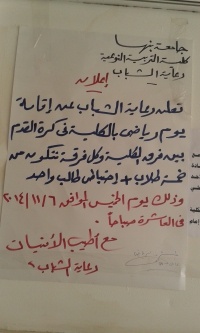 جامعة بنها
كلية التربية النوعية
رعاية الشباب
إعلان
تعلن رعاية الشباب عن إقامة
يوم رياضى بالكلية فى كرة القدم
بين فرق الكلية وكل فرقة تتكون من
خمسة طلاب + إحتياطى طالب واحد
وذلك يوم الخميس الموافق ٢٠١٤/١١/٦
فى العاشرة صباحاً.
مع أطيب الأمنيات
رعاية الشباب